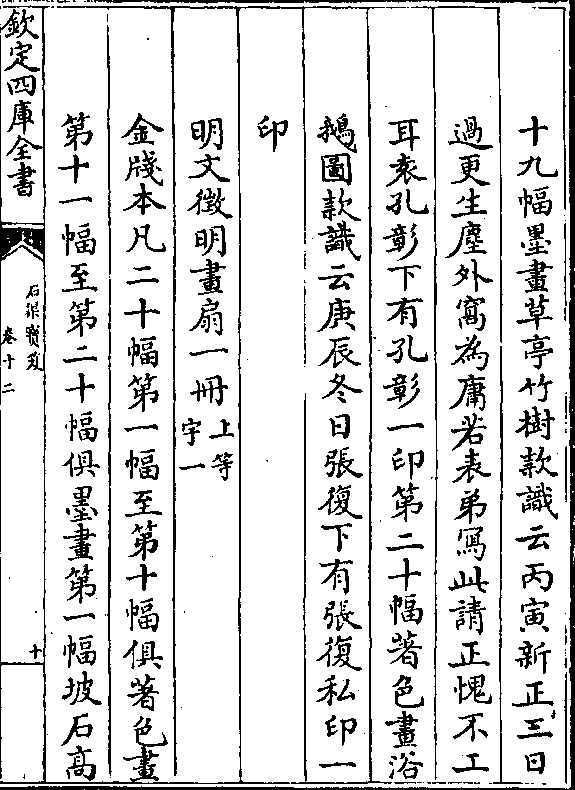 十九幅墨畫草亭竹樹款識云丙寅新正三日
過更生塵外窩為庸若表弟寫此請正愧不工
耳袁孔彰下有孔彰一印第二十幅著色畫浴
鵝圖款識云庚辰冬日張復下有張復私印一
印
明文徵明畫扇一冊上等
宇一
金牋本凡二十幅第一幅至第十幅俱著色畫
第十一幅至第二十幅俱墨畫第一幅坡石高
欽定四庫全書
石渠寳笈
卷十二
十